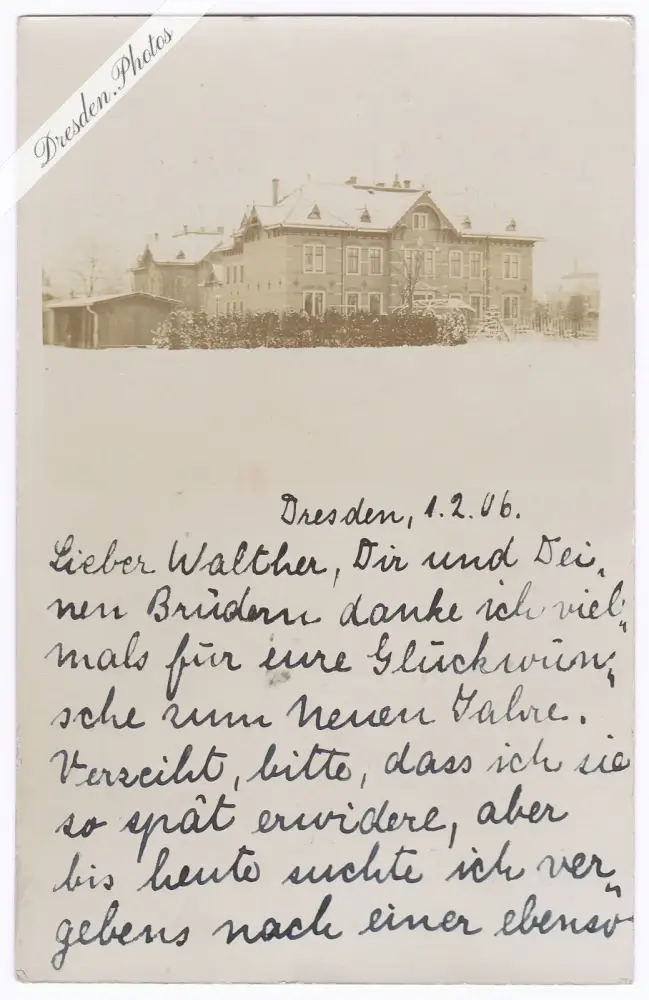 Dresden.Photos
Dresden, 1.2.06.
Lieber Walther, Dir und Dei„
nen Brüdern danke ich viel„
mals für eure Glückwün„
sche zum Neuen Jahre.
Verzeiht, bitte, dass ich sie
so spät erwidere, aber
bis heute suchte ich ver„
gebens nach einer ebenso